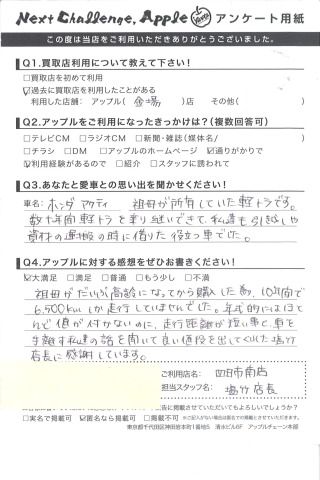 Next Challenge, Apple アンケート用紙
この度は当店をご利用いただきありがとうございました。
Q1.買取店利用について教えて下さい!
□買取店を初めて利用
☑過去に買取店を利用したことがある
利用した店舗: アップル( )店 その他( )
Q2.アップルをご利用になったきっかけは?(複数回答可)
□テレビCM □ラジオCM □新聞・雑誌(媒体名/ )
□チラシ □DM □アップルのホームページ ☑通りがかりで
☑利用経験があるので □紹介 □スタッフに誘われて
Q3.あなたと愛車との思い出を聞かせください!
車名: ホンダ アクティ 祖母が所有していた軽トラです。
数十年間軽トラを乗り継いできて、私達も引越しや
資材の運搬の時に借りた役立つ車でした。
Q4.アップルに対する感想をぜひお書きください!
☑大満足 □満足 □普通 □もう少し □不満
祖母がだいぶ高齢になってから購入した為、10年間で
6,500kmしか走行していませんでした。年式的にはほと
んど値が付かないのに、走行距離が短い事と、車を
手離す私達の話を聞いて良い値段を出してくれた塩竹
店長に感謝しています。
ご利用店名: 四日市南店
担当スタッフ名: 塩竹 店長
に掲載させていただいてもよろしいでしょうか?
□実名で掲載可 ☑匿名なら掲載可 □掲載不可
東京都千代田区神田岩本町1番地5 清水ビル6F アップルチェーン本部